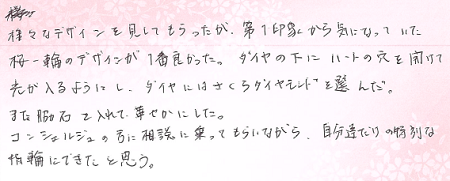 様々なデザインを見してもらったが、第1印象から気になっていた
桜一輪のデザインが1番良かった。ダイヤの下にハートの穴を開けて
光が入るようにし、ダイヤにはさくらダイヤモンドを選んだ。
また脇石を入れて華やかにした。
コンシェルジュの方に相談に乗ってもらいながら、自分達だけの特別な
指輪にできたと思う。